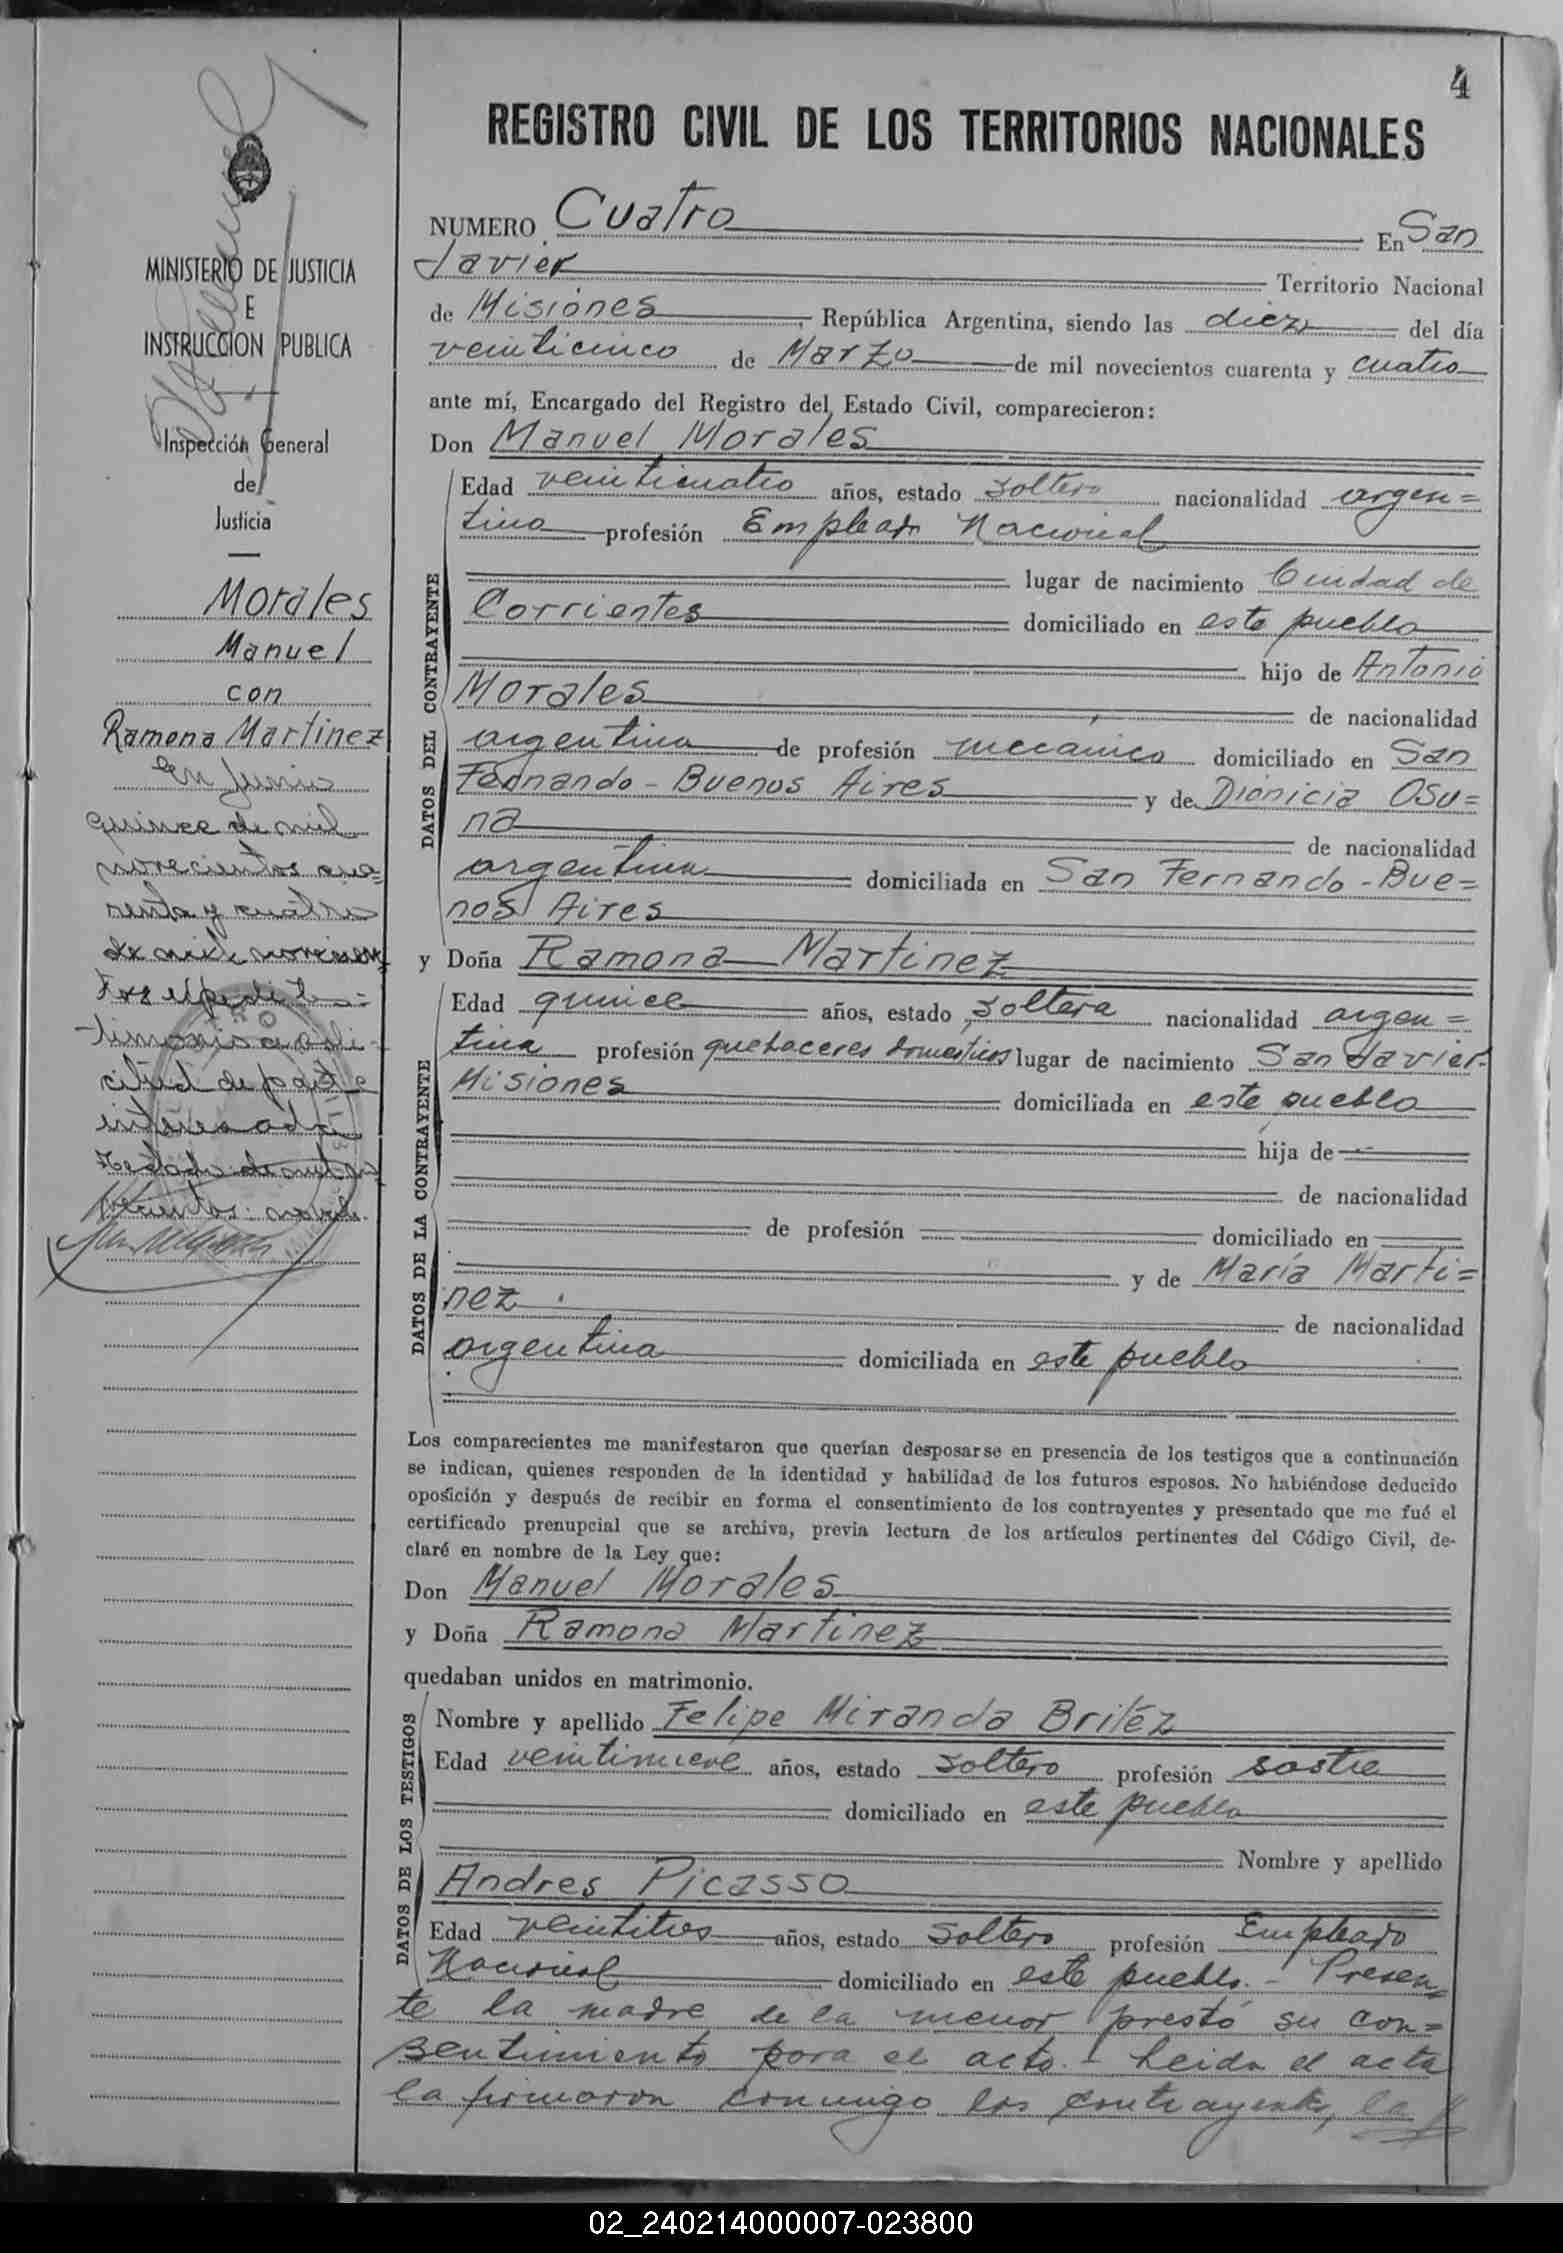 4
REGISTRO CIVIL DE LOS TERRITORIOS NACIONALES
MINISTERIO DE JUSTICIA
E
INSTRUCCION PUBLICA
Inspección General
de
Justicia
Morales
Manuel
con
Ramona Martinez
En Junio
quince de mil
novecientos cua=
renta y cuatro
de mil
Se expedi te=
timonio a soli
citud de parte
interesada
NUMERO Cuatro En San
Javier Territorio Nacional
de Misiones, República Argentina, siendo las diez del día
veinticinco de Marzo de mil novecientos cuarenta y cuatro
ante mí, Encargado del Registro del Estado Civil, comparecieron:
Don Manuel Morales
DATOS DEL CONTRAYENTE
Edad veinticuatro años, estado soltero nacionalidad argen=
tina profesión Empleado Nacional
lugar de nacimiento Ciudad de
Corrientes domiciliado en este pueblo
hijo de Antonio
Morales de nacionalidad
argentina de profesión mecánico domiciliado en San
Fernando - Buenos Aires y de Dionicia Osu=
na de nacionalidad
argentina domiciliada en San Fernando - Bue=
nos Aires
y Doña Ramona Martinez
DATOS DE LA CONTRAYENTE
Edad quince años, estado soltera nacionalidad argen=
tina profesión quehaceres domesticos lugar de nacimiento San Javier-
Misiones domiciliada en este pueblo
hija de
de nacionalidad
de profesión domiciliado en
y de María Marti=
nez de nacionalidad
argentina domiciliada en este pueblo
Los comparecientes me manifestaron que querían desposarse en presencia de los testigos que a continuación
se indican, quienes responden de la identidad y habilidad de los futuros esposos. No habiéndose deducido
oposición y después de recibir en forma el consentimiento de los contrayentes y presentado que me fué el
certificado prenupcial que se archiva, previa lectura de los artículos pertinentes del Código Civil, de-
claré en nombre de la Ley que:
Don Manuel Morales
y Doña Ramona Martinez
quedaban unidos en matrimonio.
DATOS DE LOS TESTIGOS
Nombre y apellido Felipe Miranda Britéz
Edad veintinueve años, estado soltero profesión sastre
domiciliado en este pueblo
Nombre y apellido
Andres Picasso
Edad veintitres años, estado soltero profesión Empleado
Nacional domiciliado en este pueblo. - Presen=
te la madre de la menor prestó su con=
sentimiento para el acto. - Leida el acta
la firmaron conmigo los contrayentes, la
02_240214000007-023800